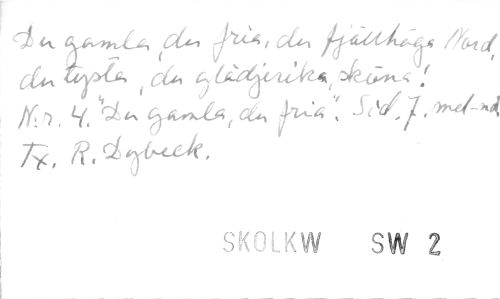 Du gamla, du fria, du fjällhöga Nord,
du tysta, du glädjerika sköna!
N:r. 4. "Du gamla, du fria". Sid. 7. mel-nd.
Tx. R. Dybeck.
SKOLKW SW 2